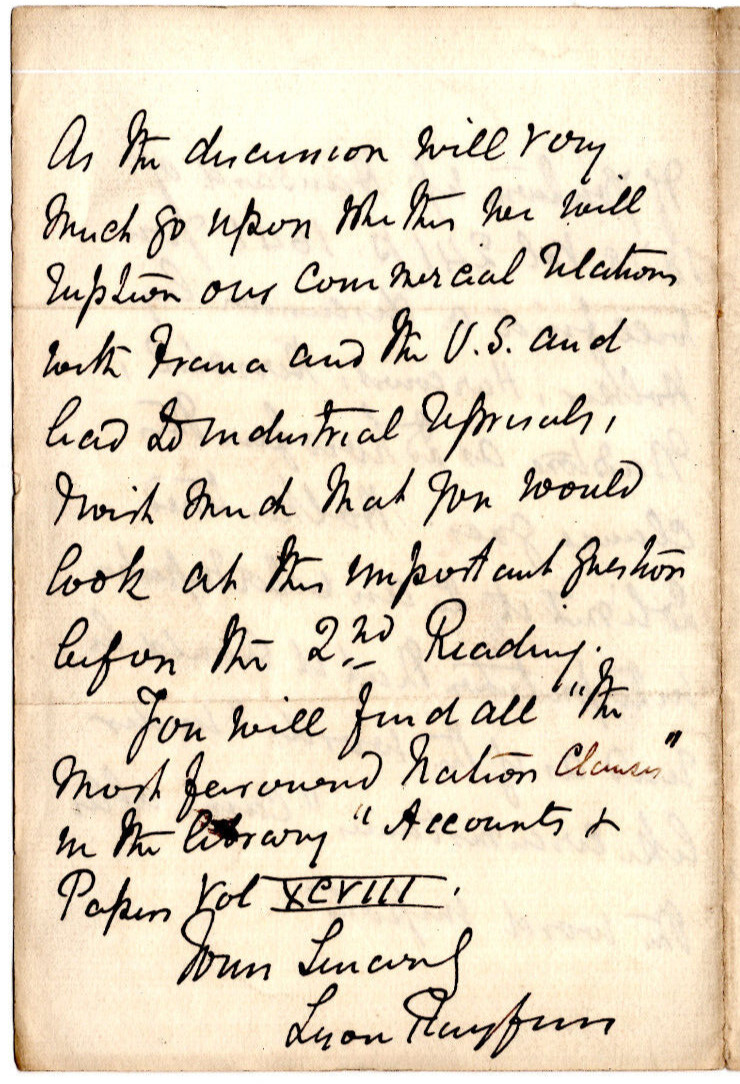 As the discussion will very
much go upon whether we will
rupture our commercial relations
with France and the U.S. and
lead to industrial reprisals,
I wish much that you would
look at this important question
before the 2nd Reading.
You will find all "the
most favoured Nation Clauses"
in the library "Accounts &
Papers Vol XCVIII.
Yours Sincerely
Lyon Playfair